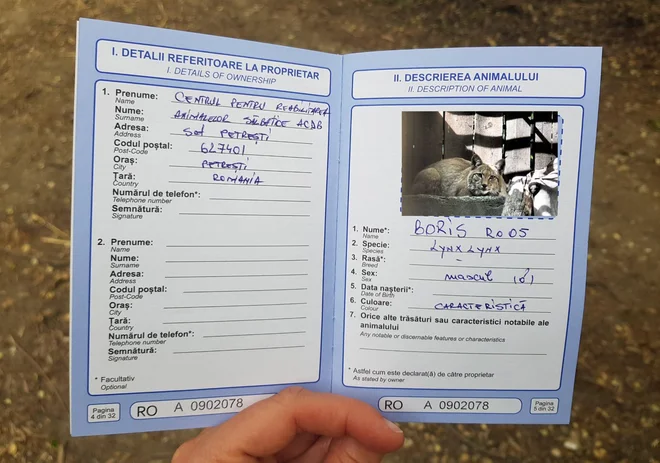 I. DETALII REFERITOARE LA PROPRIETAR
I. DETAILS OF OWNERSHIP
1. Prenume: CENTRUL PENTRU REABILITAREA
Name
Nume: ANIMALELOR SĂLBATICE ACDB
Surname
Adresa: Sat PETREȘTI
Address
Codul poștal: 627401
Post-Code
Oraș: PETREȘTI
City
Țară: ROMÂNIA
Country
Numărul de telefon*:
Telephone number
Semnătură:
Signature
2. Prenume:
Name
Nume:
Surname
Adresa:
Address
Codul poștal:
Post-Code
Oraș:
City
Țară:
Country
Numărul de telefon*:
Telephone number
Semnătură:
Signature
* Facultativ
Optional
Pagina
4 din 32
RO A 0902078
II. DESCRIEREA ANIMALULUI
II. DESCRIPTION OF ANIMAL
1. Nume*: BORIS RO05
Name
2. Specie: LYNX LYNX
Species
3. Rasă*: -
Breed
4. Sex: mascul (♂)
Sex
5. Data nașterii*:
Date of Birth
6. Culoare: CARACTERISTICĂ
Colour
7. Orice alte trăsături sau caracteristici notabile ale
animalului
Any notable or discernable features or characteristics
* Astfel cum este declarat(ă) de către proprietar
As stated by owner
RO A 0902078
Pagina
5 din 32